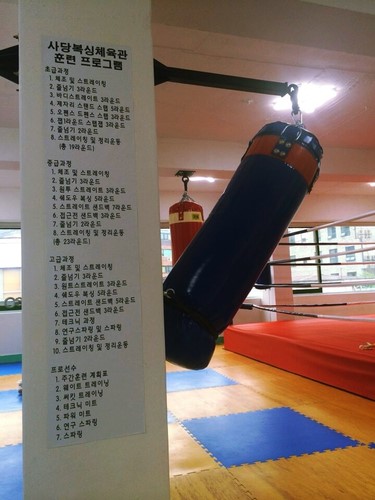 사당복싱체육관
훈련 프로그램
초급과정
1. 체조 및 스트레칭
2. 줄넘기 3라운드
3. 바디스트레이트 3라운드
4. 제자리 스탠드 스텝 5라운드
5. 오펜스 드펜스 스텝 3라운드
6. 잽1라운드 스텝잽 3라운드
7. 줄넘기 2라운드
8. 스트레이칭 및 정리운동
(총 19라운드)
중급과정
1. 체조 및 스트레칭
2. 줄넘기 5라운드
3. 원투 스트레이트 3라운드
4. 쉐도우 복싱 5라운드
5. 스트레이트 샌드백 7라운드
6. 접근전 샌드백 3라운드
7. 줄넘기 2라운드
8. 스트레이칭 및 정리운동
(총 23라운드)
고급과정
1. 체조 및 스트레칭
2. 줄넘기 3라운드
3. 원트스트레이트 3라운드
4. 쉐도우 복싱 5라운드
5. 스트레이트 샌드백 5라운드
6. 접근전 샌드백 3라운드
7. 테크닉 과정
8. 연구스파링 및 스파링
9. 줄넘기 2라운드
10. 스트레이칭 및 정리운동
프로선수
1. 주간훈련 계획표
2. 웨이트 트레이닝
3. 써킷 트레이닝
4. 테크닉 미트
5. 파워 미트
6. 연구 스파링
7. 스파링